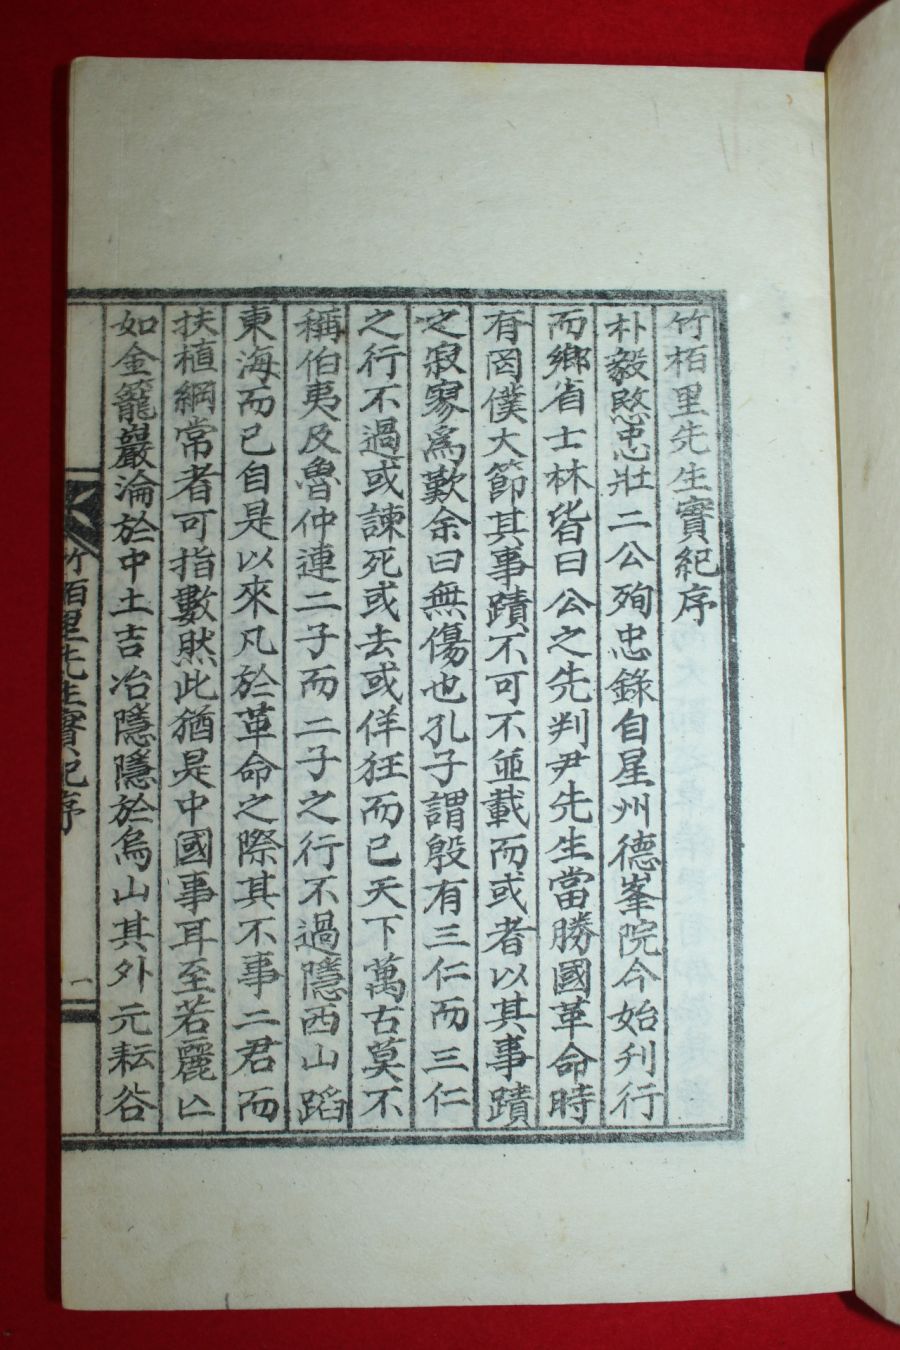 竹栢里先生實紀序
朴毅愍忠壯二公殉忠錄自星州德峯院今始刋行
而鄉省士林皆曰公之先判尹先生當勝國革命時
有罔僕大節其事蹟不可不並載而或者以其事蹟
之寂寥爲歎余曰無傷也孔子謂殷有三仁而三仁
之行不過或諫死或去或佯狂而已天下萬古莫不
稱伯夷及魯仲連二子而二子之行不過隱西山蹈
東海而已自是以來凡於革命之際其不事二君而
扶植綱常者可指數然此猶是中國事耳至若麗亾
如金籠巖淪於中土吉冶隱隱於烏山其外元耘谷
竹栢里先生實紀序
一